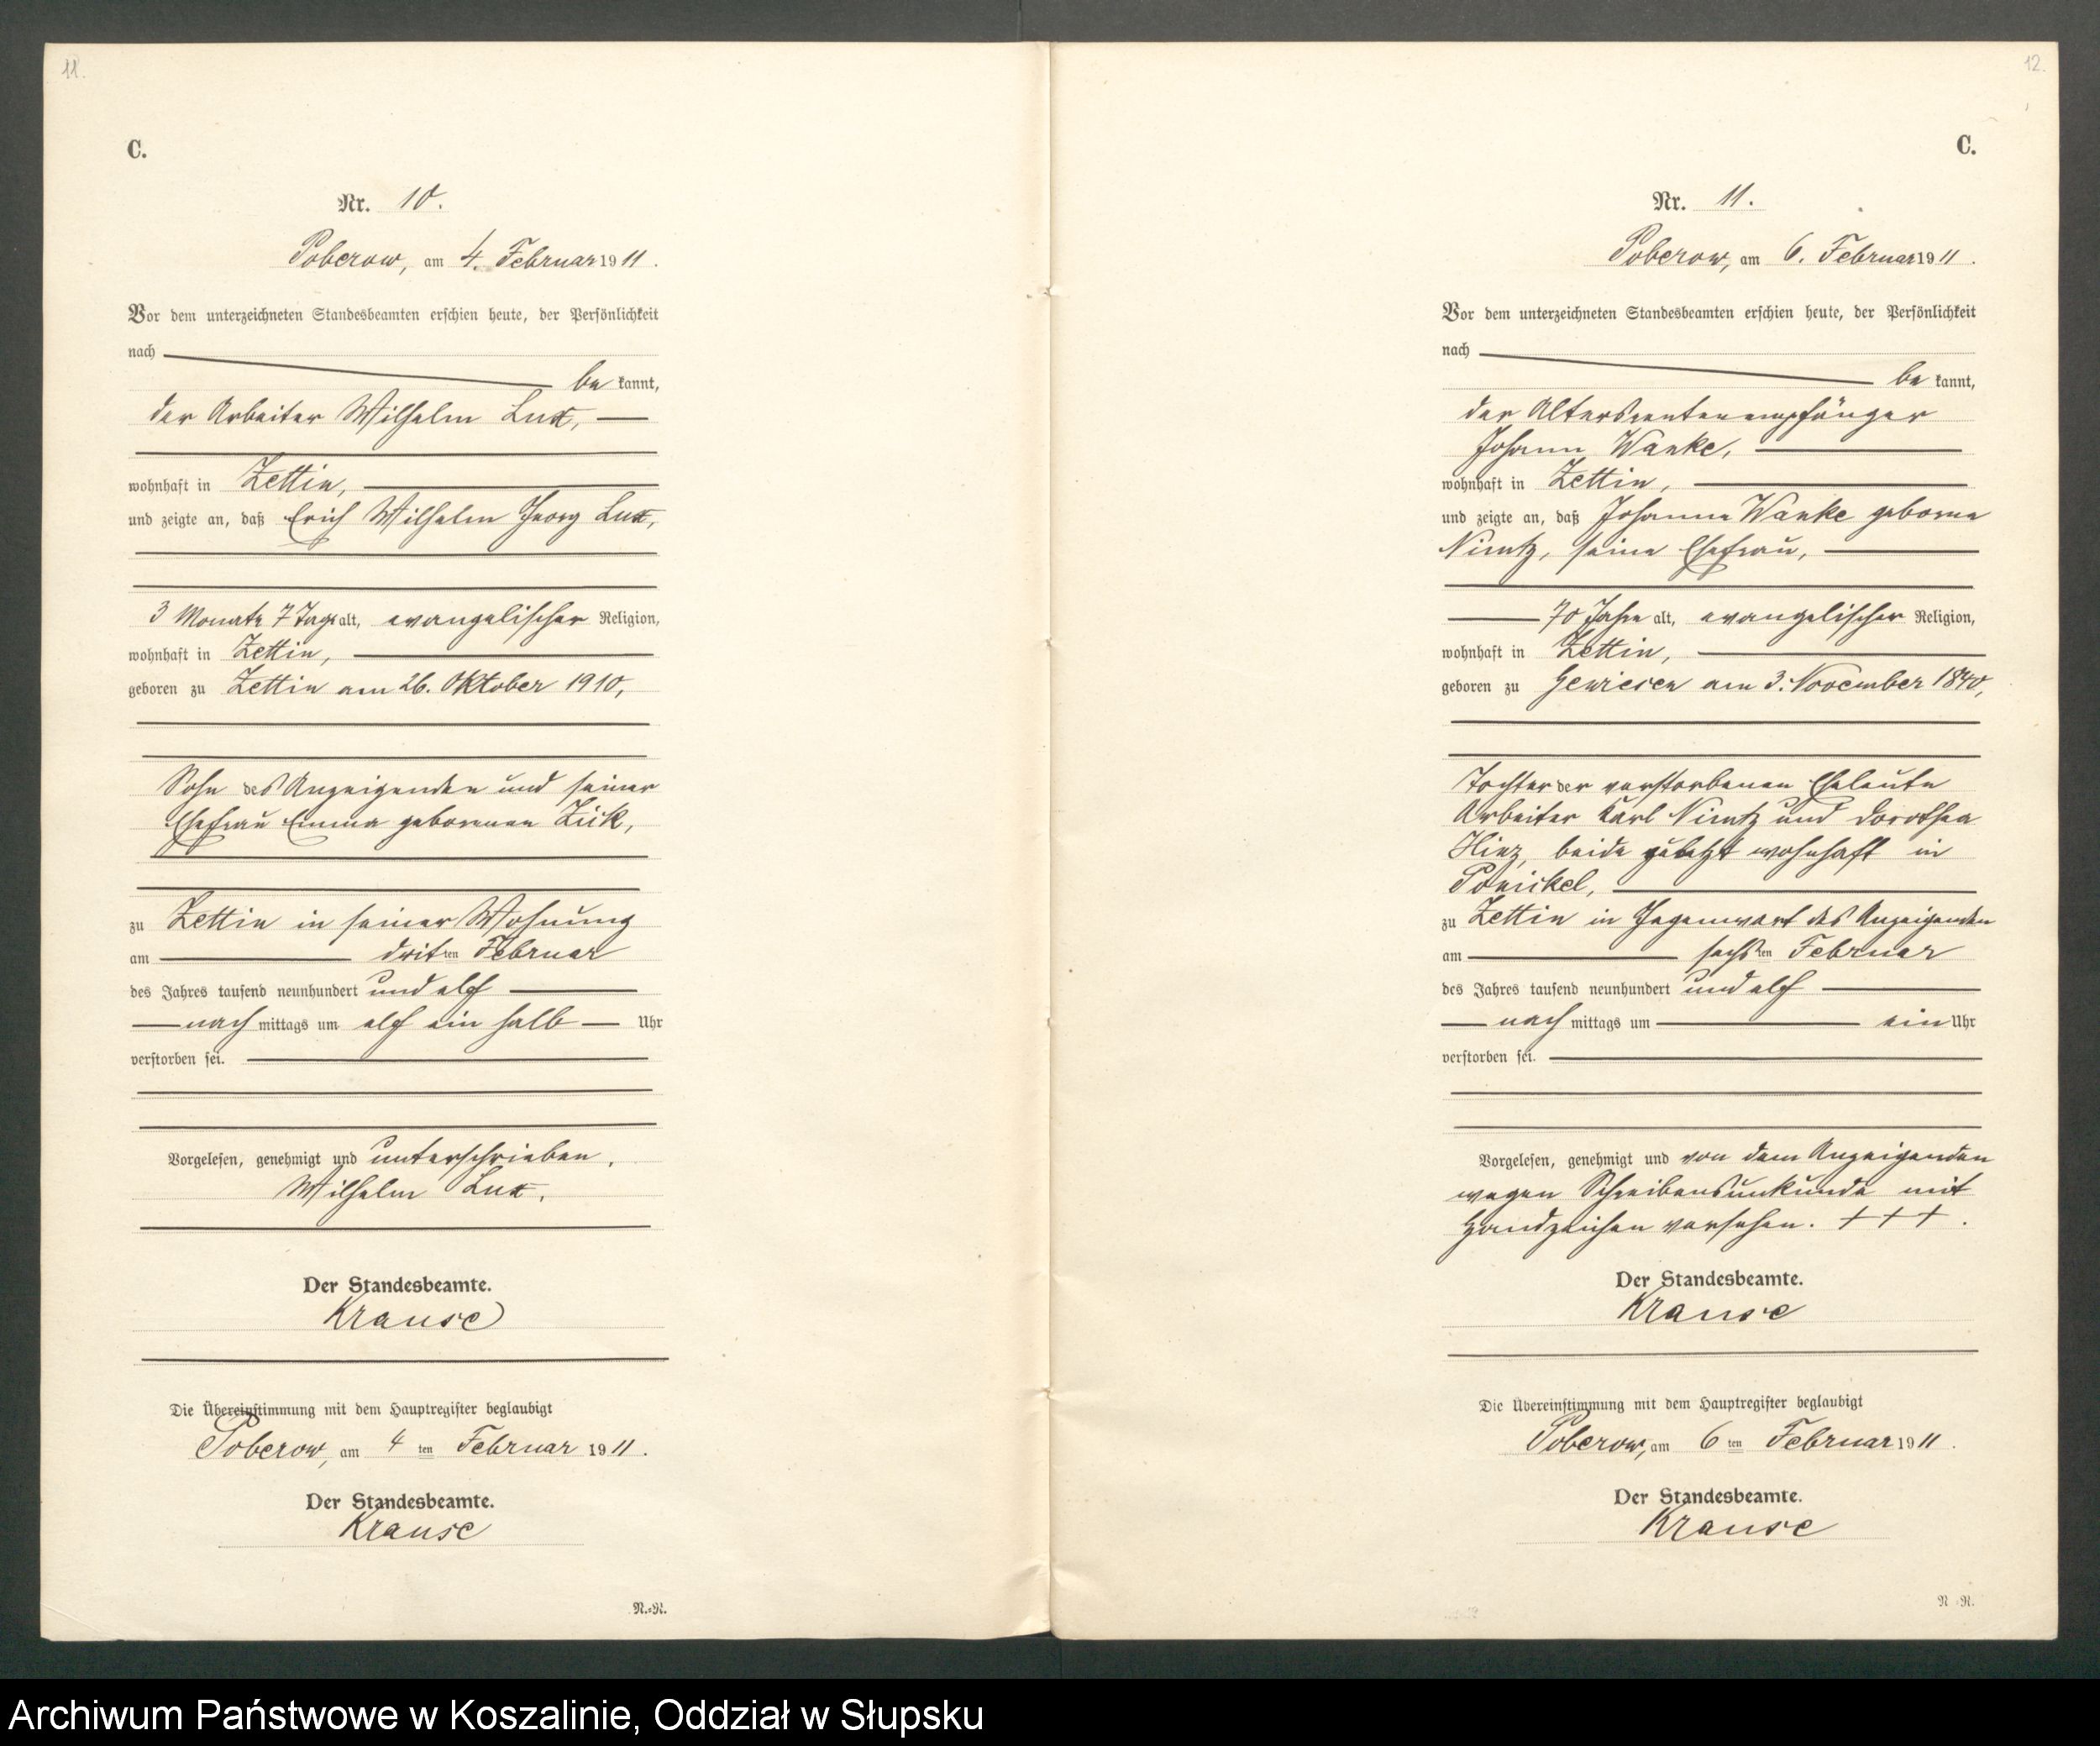 11.
C.
Nr. 10.
Poberow, am 4. Februar 1911.
Vor dem unterzeichneten Standesbeamten erschien heute, der Persönlichkeit
nach
be kannt,
der Arbeiter Wilhelm Lux,
wohnhaft in Zettin,
und zeigte an, daß Erich Wilhelm Georg Lux,
3 Monate 7 Tage alt, evangelischer Religion,
wohnhaft in Zettin,
geboren zu Zettin am 26. Oktober 1910,
Sohn des Anzeigenden und seiner
Ehefrau Emma geborenen Lück,
zu Zettin in seiner Wohnung
am dritten Februar
des Jahres tausend neunhundert und elf
nach mittags um elf ein halb Uhr
verstorben sei.
Vorgelesen, genehmigt und unterschrieben.
Wilhelm Lux.
Der Standesbeamte.
Krause
Die Übereinstimmung mit dem Hauptregister beglaubigt
Poberow, am 4 ten Februar 1911.
Der Standesbeamte.
Krause
N.=N.
12.
C.
Nr. 11.
Poberow, am 6. Februar 1911.
Vor dem unterzeichneten Standesbeamten erschien heute, der Persönlichkeit
nach
be kannt,
der Altersrentenempfänger
Johann Wanke,
wohnhaft in Zettin,
und zeigte an, daß Johanne Wanke geborne
Nimtz, seine Ehefrau,
70 Jahre alt, evangelischer Religion,
wohnhaft in Zettin,
geboren zu Gewiesen am 3. November 1840,
Tochter der verstorbenen Eheleute
Arbeiter Karl Nimtz und Dorothea
Hinz, beide zuletzt wohnhaft in
Ponickel,
zu Zettin in Gegenwart des Anzeigenden
am sechsten Februar
des Jahres tausend neunhundert und elf
nach mittags um ein Uhr
verstorben sei.
Vorgelesen, genehmigt und von dem Anzeigenden
wegen Schreibensunkunde mit
Handzeichen versehen. + + +.
Der Standesbeamte.
Krause
Die Übereinstimmung mit dem Hauptregister beglaubigt
Poberow, am 6 ten Februar 1911.
Der Standesbeamte.
Krause
N.=N.
Archiwum Państwowe w Koszalinie, Oddział w Słupsku